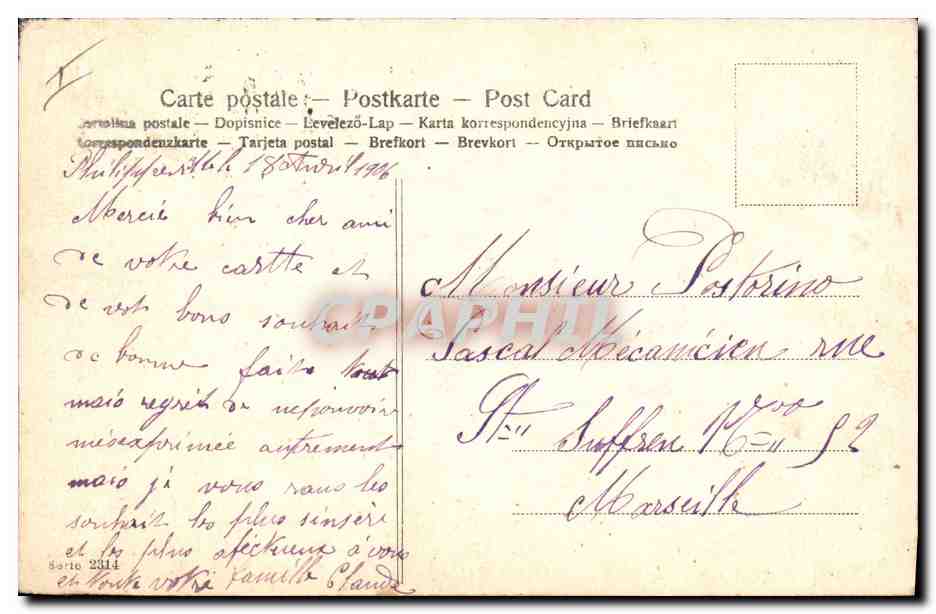 Carte postale — Postkarte — Post Card
Cartolina postale — Dopisnice — Levelező-Lap — Karta korrespondencyjna — Briefkaart
Correspondenzkarte — Tarjeta postal — Brefkort — Brevkort — Открытое письмо
Philippeville 18 Avril 1906
Mercie bien cher ami
de votre cartte et
de vot bons souhait
de bonne faite tout
mais regret de ne pouvoir
mésexprimée autrement
mais je vous rans les
souhait les plus sinsère
et les plus afécktueux à vous
et toute votre famille Claude
Serie 2314
Monsieur Postorino
Pascal Mécanicien rue
Suffren 52
Marseille
CPAPHIL